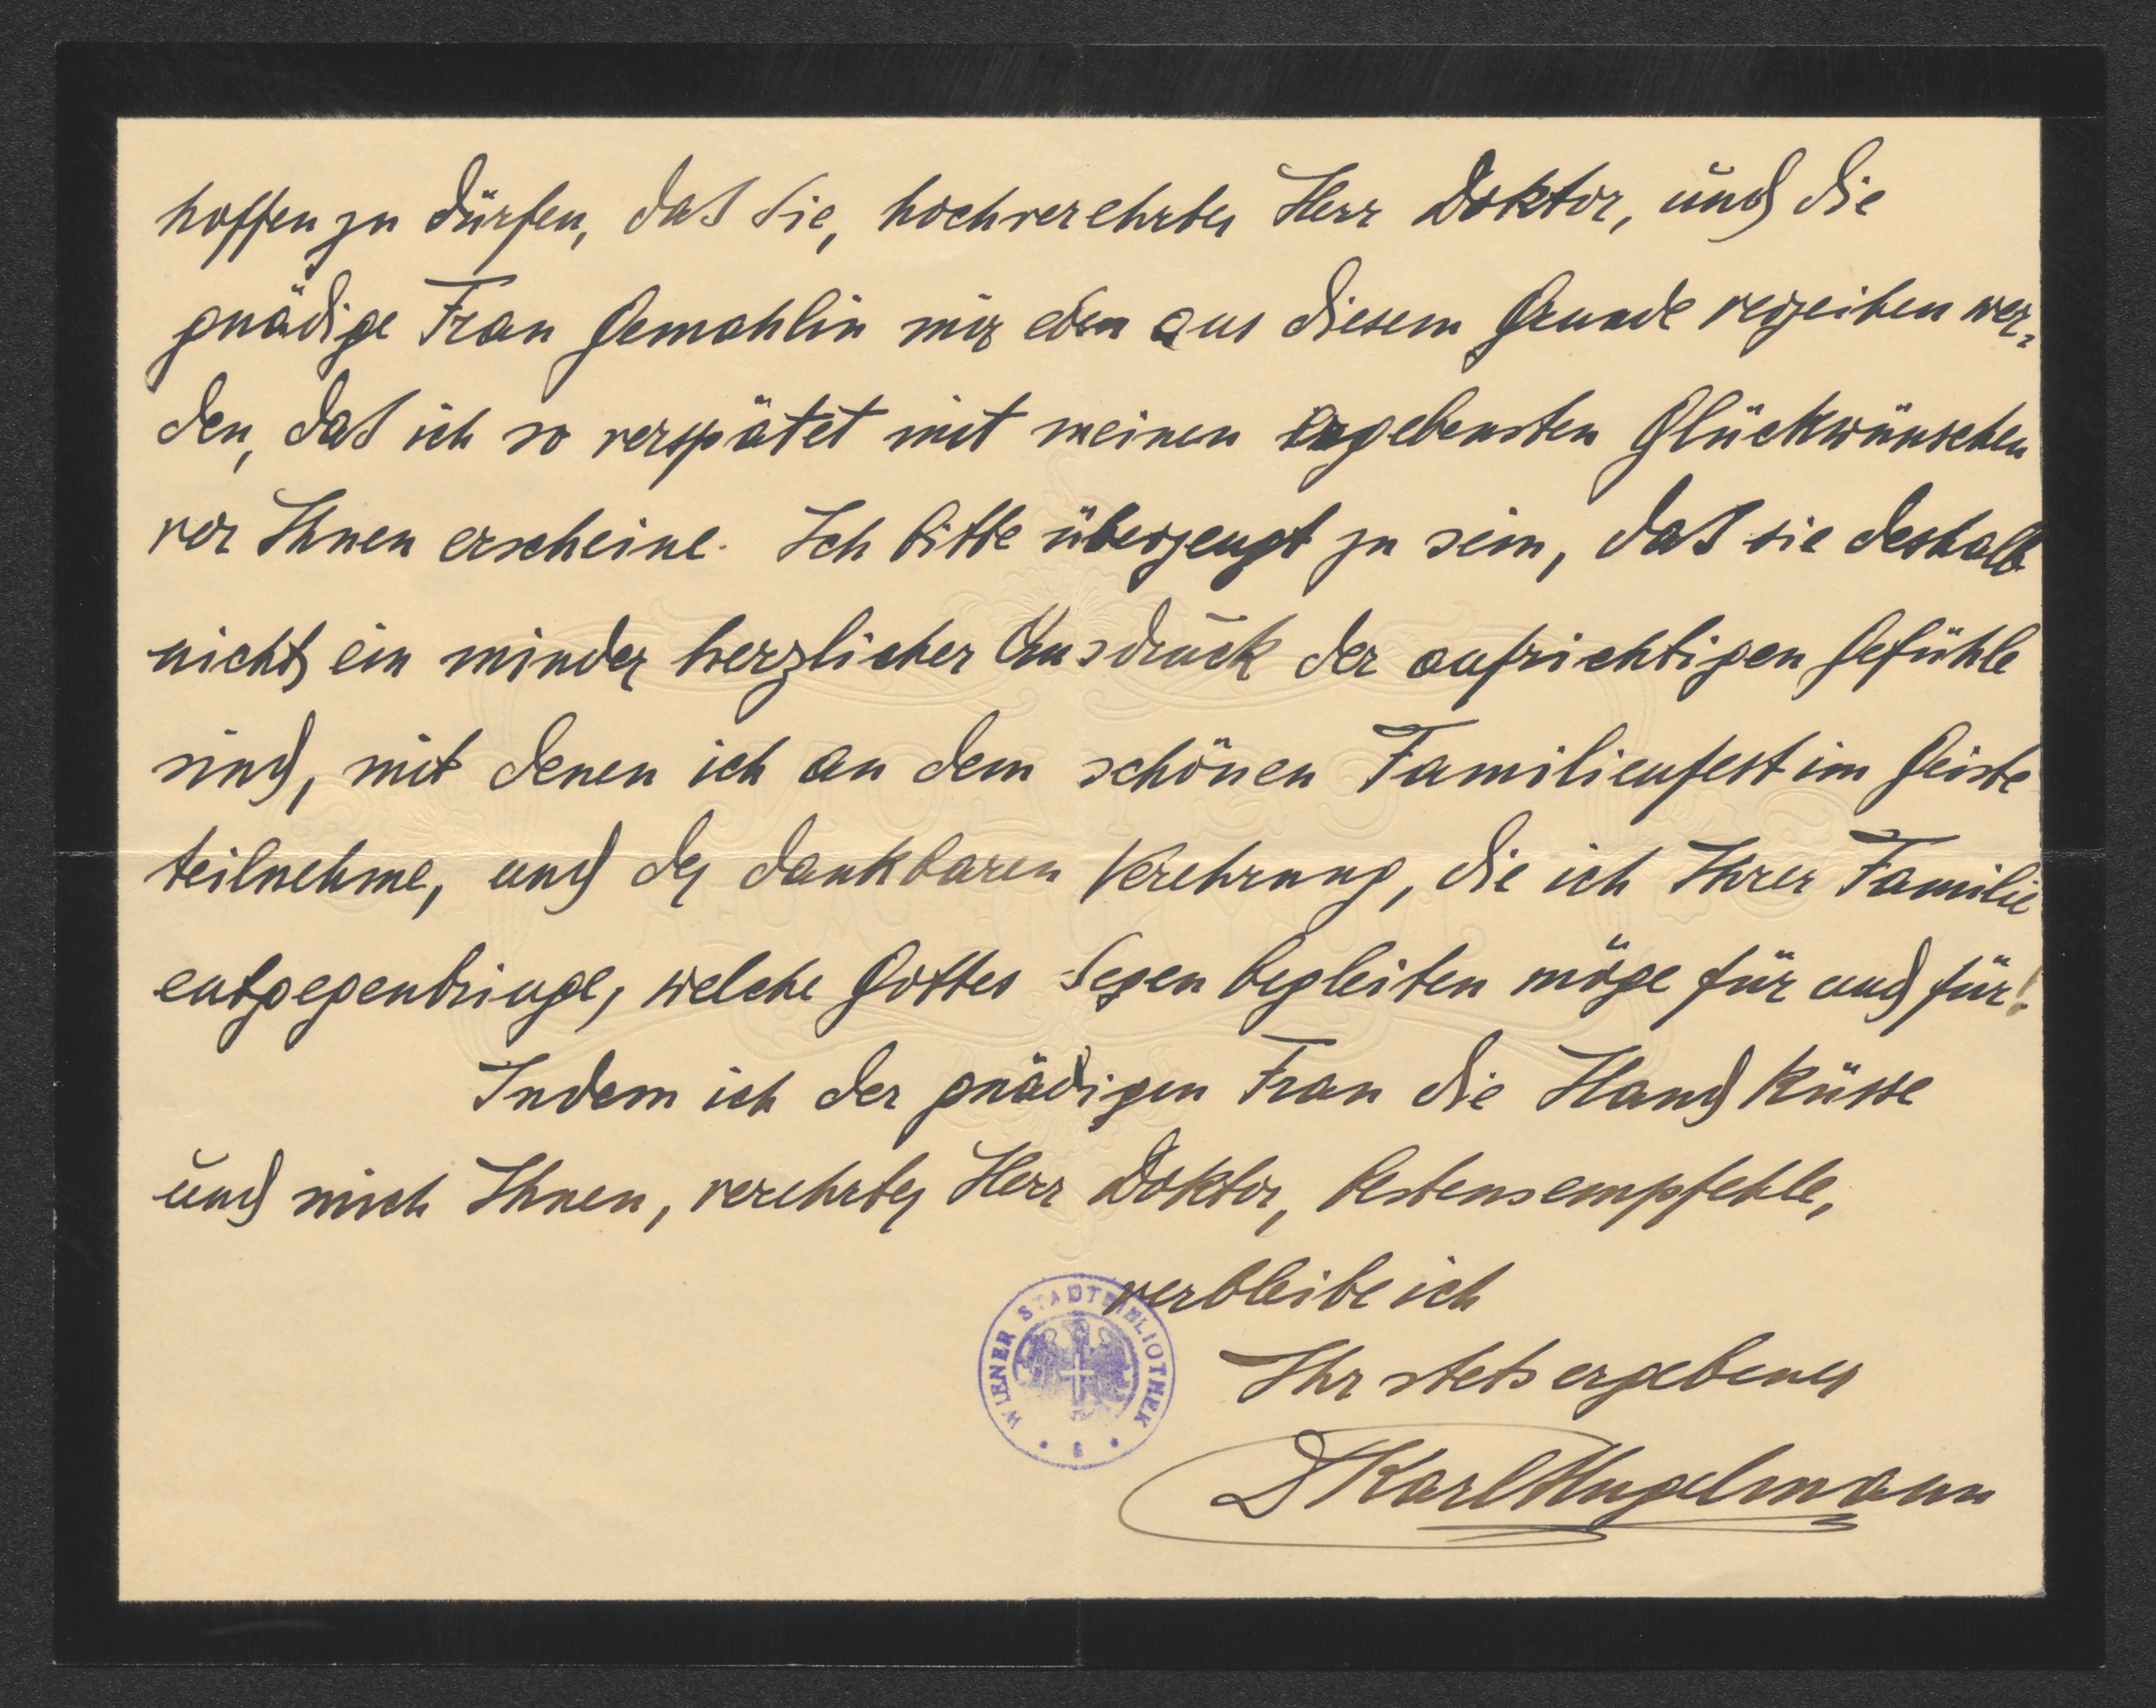 hoffen zu dürfen, daß Sie, hochverehrter Herr Doktor, und die
gnädige Frau Gemahlin mir eben aus diesem Grunde verzeihen wer-
den, daß ich so verspätet mit meinen ergebensten Glückwünschen
vor Ihnen erscheine. Ich bitte überzeugt zu sein, daß sie deshalb
nicht ein minder herzlicher Ausdruck der aufrichtigen Gefühle
sind, mit denen ich an dem schönen Familienfest im Geiste
teilnehme, und der dankbaren Verehrung, die ich Ihrer Familie
entgegenbringe, welche Gottes Segen begleiten möge für und für!
Indem ich der gnädigen Frau die Hand küsse
und mich Ihnen, verehrter Herr Doktor, bestens empfehle,
verbleibe ich
Ihr stets ergebener
D Karl Hugelmann
WIENER STADTBIBLIOTHEK